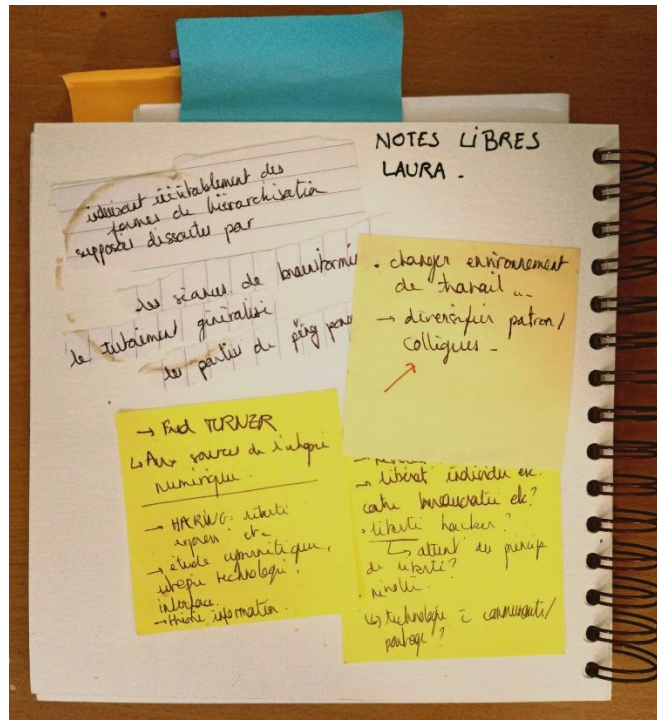 NOTES LiBRES
LAURA.
induisant inévitablement des
formes de hiérarchisation
supposées dissoutes par
les séances de brainstormi
le tutoiement généralisé
les parties de ping pong
• changer environnement
de travail ...
→ diversifier patron /
collègues -
→ Fred TURNER
↳ Aux sources de l'utopie
numérique.
→ HACKING: liberté
express° etc
→ étude cybernétique,
utopie technologie,
interface.
→ théorie information.
→ libérat° individu
contre bureaucratie etc?
• liberté hacker?
↳ attent du principe
de liberté?
↳ technologie = communauté/
partage?